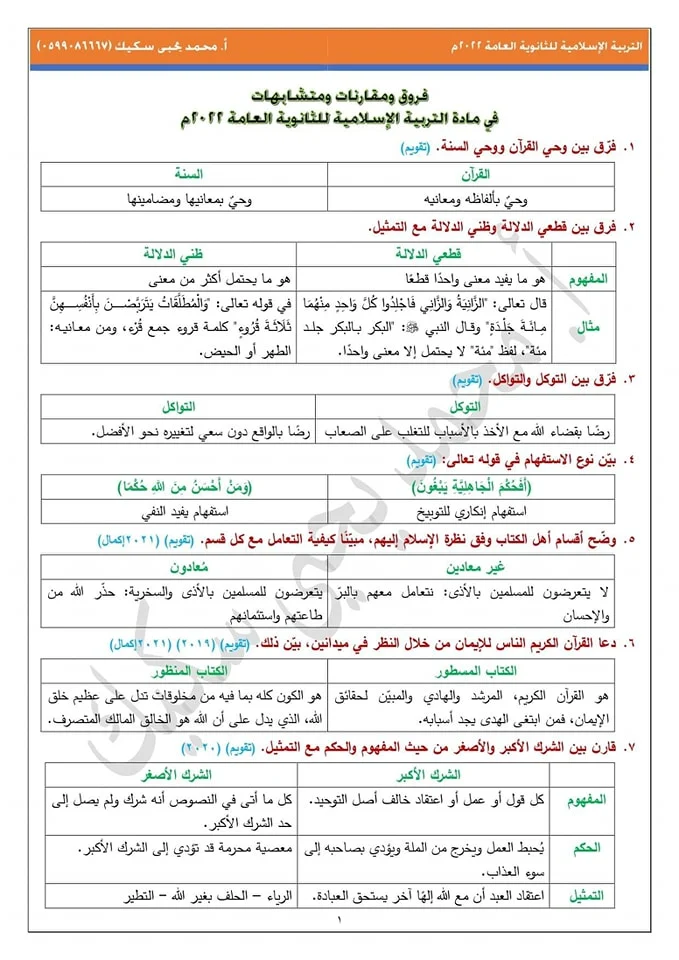 التربية الإسلامية للثانوية العامة ٢٠٢٢م
أ. محمد يحيى سكيك (٠٥٩٩٠٨٦٦٦٧)
فروق ومقارنات ومتشابهات
في مادة التربية الإسلامية للثانوية العامة ٢٠٢٢م
١. فرّق بين وحي القرآن ووحي السنة. (تقويم)
القرآن
السنة
وحيٌ بألفاظه ومعانيه
وحيٌ بمعانيها ومضامينها
٢. فرق بين قطعي الدلالة وظني الدلالة مع التمثيل.
قطعي الدلالة
ظني الدلالة
المفهوم
هو ما يفيد معنى واحدًا قطعًا
هو ما يحتمل أكثر من معنى
مثال
قال تعالى: "الزَّانِيَةُ وَالزَّانِي فَاجْلِدُوا كُلَّ وَاحِدٍ مِنْهُمَا
مِائَةَ جَلْدَةٍ" وقال النبي ﷺ: "البكر بالبكر جلد
مئة"، لفظ "مئة" لا يحتمل إلا معنى واحدًا.
في قوله تعالى: "وَالْمُطَلَّقَاتُ يَتَرَبَّصْنَ بِأَنْفُسِهِنَّ
ثَلَاثَةَ قُرُوءٍ" كلمة قروء جمع قُرْء، ومن معانيه:
الطهر أو الحيض.
٣. فرّق بين التوكل والتواكل. (تقويم)
التوكل
التواكل
رضًا بقضاء الله مع الأخذ بالأسباب للتغلب على الصعاب
رضًا بالواقع دون سعي لتغييره نحو الأفضل.
٤. بيّن نوع الاستفهام في قوله تعالى: (تقويم)
(أَفَحُكْمَ الْجَاهِلِيَّةِ يَبْغُونَ)
(وَمَنْ أَحْسَنُ مِنَ اللَّهِ حُكْمًا)
استفهام إنكاري للتوبيخ
استفهام يفيد النفي
٥. وضّح أقسام أهل الكتاب وفق نظرة الإسلام إليهم، مبيّنًا كيفية التعامل مع كل قسم. (تقويم) (٢٠٢١إكمال)
غير معادين
مُعادون
لا يتعرضون للمسلمين بالأذى: نتعامل معهم بالبرّ
والإحسان
يتعرضون للمسلمين بالأذى والسخرية: حذّر الله من
طاعتهم واستئمانهم
٦. دعا القرآن الكريم الناس للإيمان من خلال النظر في ميدانين، بيّن ذلك. (تقويم) (٢٠١٩) (٢٠٢١إكمال)
الكتاب المسطور
الكتاب المنظور
هو القرآن الكريم، المرشد والهادي والمبيّن لحقائق
الإيمان، فمن ابتغى الهدى يجد أسبابه.
هو الكون كله بما فيه من مخلوقات تدل على عظيم خلق
الله، الذي يدل على أن الله هو الخالق المالك المتصرف.
٧. قارن بين الشرك الأكبر والأصغر من حيث المفهوم والحكم مع التمثيل. (تقويم) (٢٠٢٠)
الشرك الأكبر
الشرك الأصغر
المفهوم
كل قول أو عمل أو اعتقاد خالف أصل التوحيد.
كل ما أتى في النصوص أنه شرك ولم يصل إلى
حد الشرك الأكبر.
الحكم
يُحبط العمل ويخرج من الملة ويؤدي بصاحبه إلى
سوء العذاب.
معصية محرمة قد تؤدي إلى الشرك الأكبر.
التمثيل
اعتقاد العبد أن مع الله إلهًا آخر يستحق العبادة.
الرياء – الحلف بغير الله – التطير
١
أ. محمد يحيى سكيك